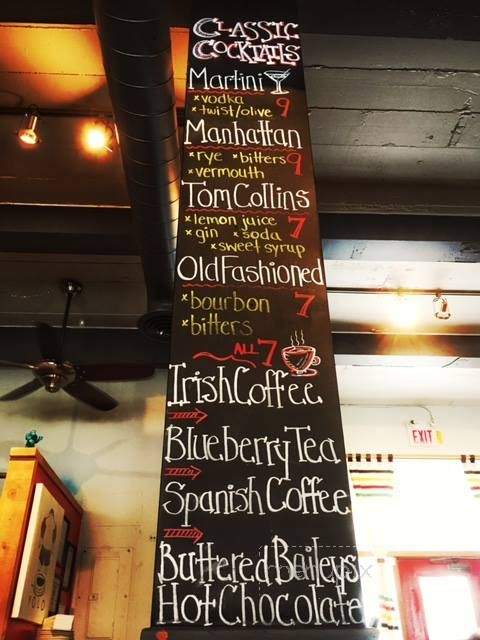 CLASSIC
COCKTAILS
Martini
x vodka 9
x twist/olive
Manhattan
x rye x bitters 9
x vermouth
Tom Collins
x lemon juice 7
x gin x soda
x sweet syrup
Old Fashioned
x bourbon 7
x bitters
ALL 7
Irish Coffee
Blueberry Tea
Spanish Coffee
Buttered Baileys
Hot Chocolate
EXIT
YOLO